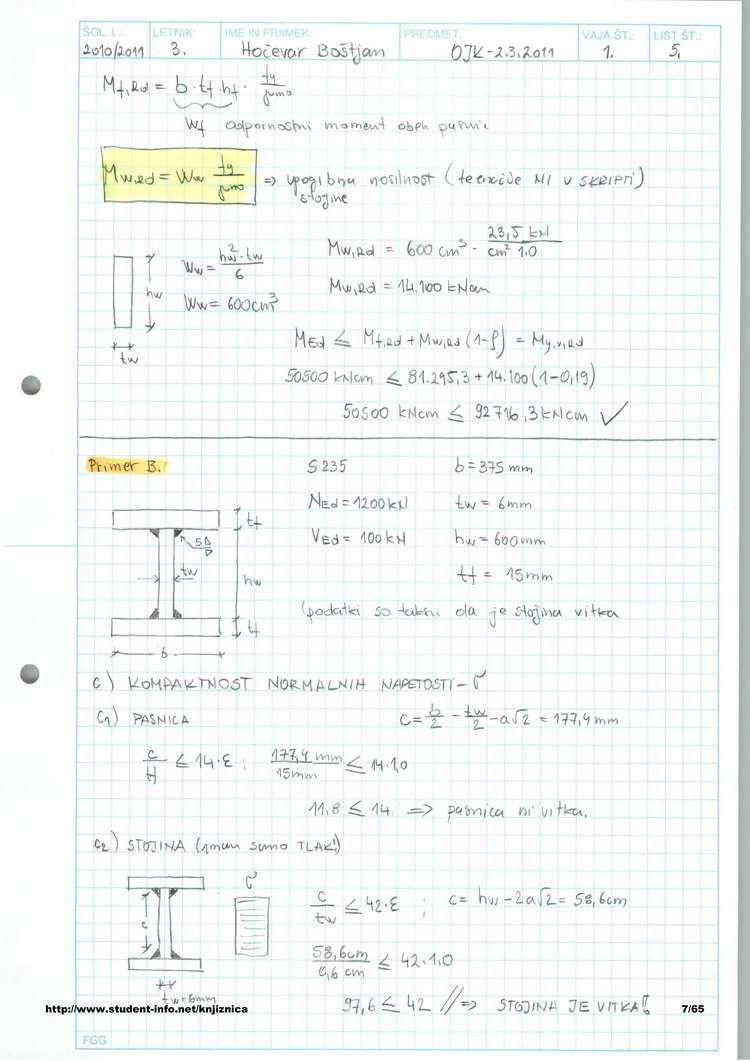 ŠOL. L.: LETNIK: IME IN PRIIMEK: PREDMET: VAJA ŠT.: LIST ŠT.:
2010/2011 3. Hočevar Boštjan OJK-2.3.2011 1. 5.
Mf,Rd = b · tf · hf · fy/γM0
Wf odpornostni moment obeh pasnic
Mw,Rd = Ww fy/γM0 => upogibna nosilnost (te enačbe NI V SKRIPTI)
stojine
Ww = hw²·tw/6
Ww = 600cm³
hw
tw
Mw,Rd = 600 cm³ · 23,5 kN/cm² 1.0
Mw,Rd = 14.100 kNcm
MEd ≤ Mf,Rd + Mw,Rd (1-ρ) = My,v,Rd
50500 kNcm ≤ 81.295,3 + 14.100 (1-0,19)
50500 kNcm ≤ 92716,3 kNcm ✓
Primer B.: S 235 b = 375 mm
NEd = 1200 kN tw = 6mm
VEd = 100 kN hw = 600mm
tf = 15mm
tf
5
tw
hw
tf
b
(podatki so takšni, da je stojina vitka
C) KOMPAKTNOST NORMALNIH NAPETOSTI - σ
C1) PASNICA c = b/2 - tw/2 - a√2 = 177,4 mm
c/tf ≤ 14·ε ; 177,4 mm/15mm ≤ 14·1,0
11,8 ≤ 14 => pasnica ni vitka.
C2) STOJINA (imam samo TLAK!)
σ
c
tw=6mm
c/tw ≤ 42·ε ; c = hw - 2a√2 = 58,6cm
58,6cm/0,6 cm ≤ 42·1,0
97,6 ≤ 42 // => STOJINA JE VITKA!
http://www.student-info.net/knjiznica 7/65
FGG